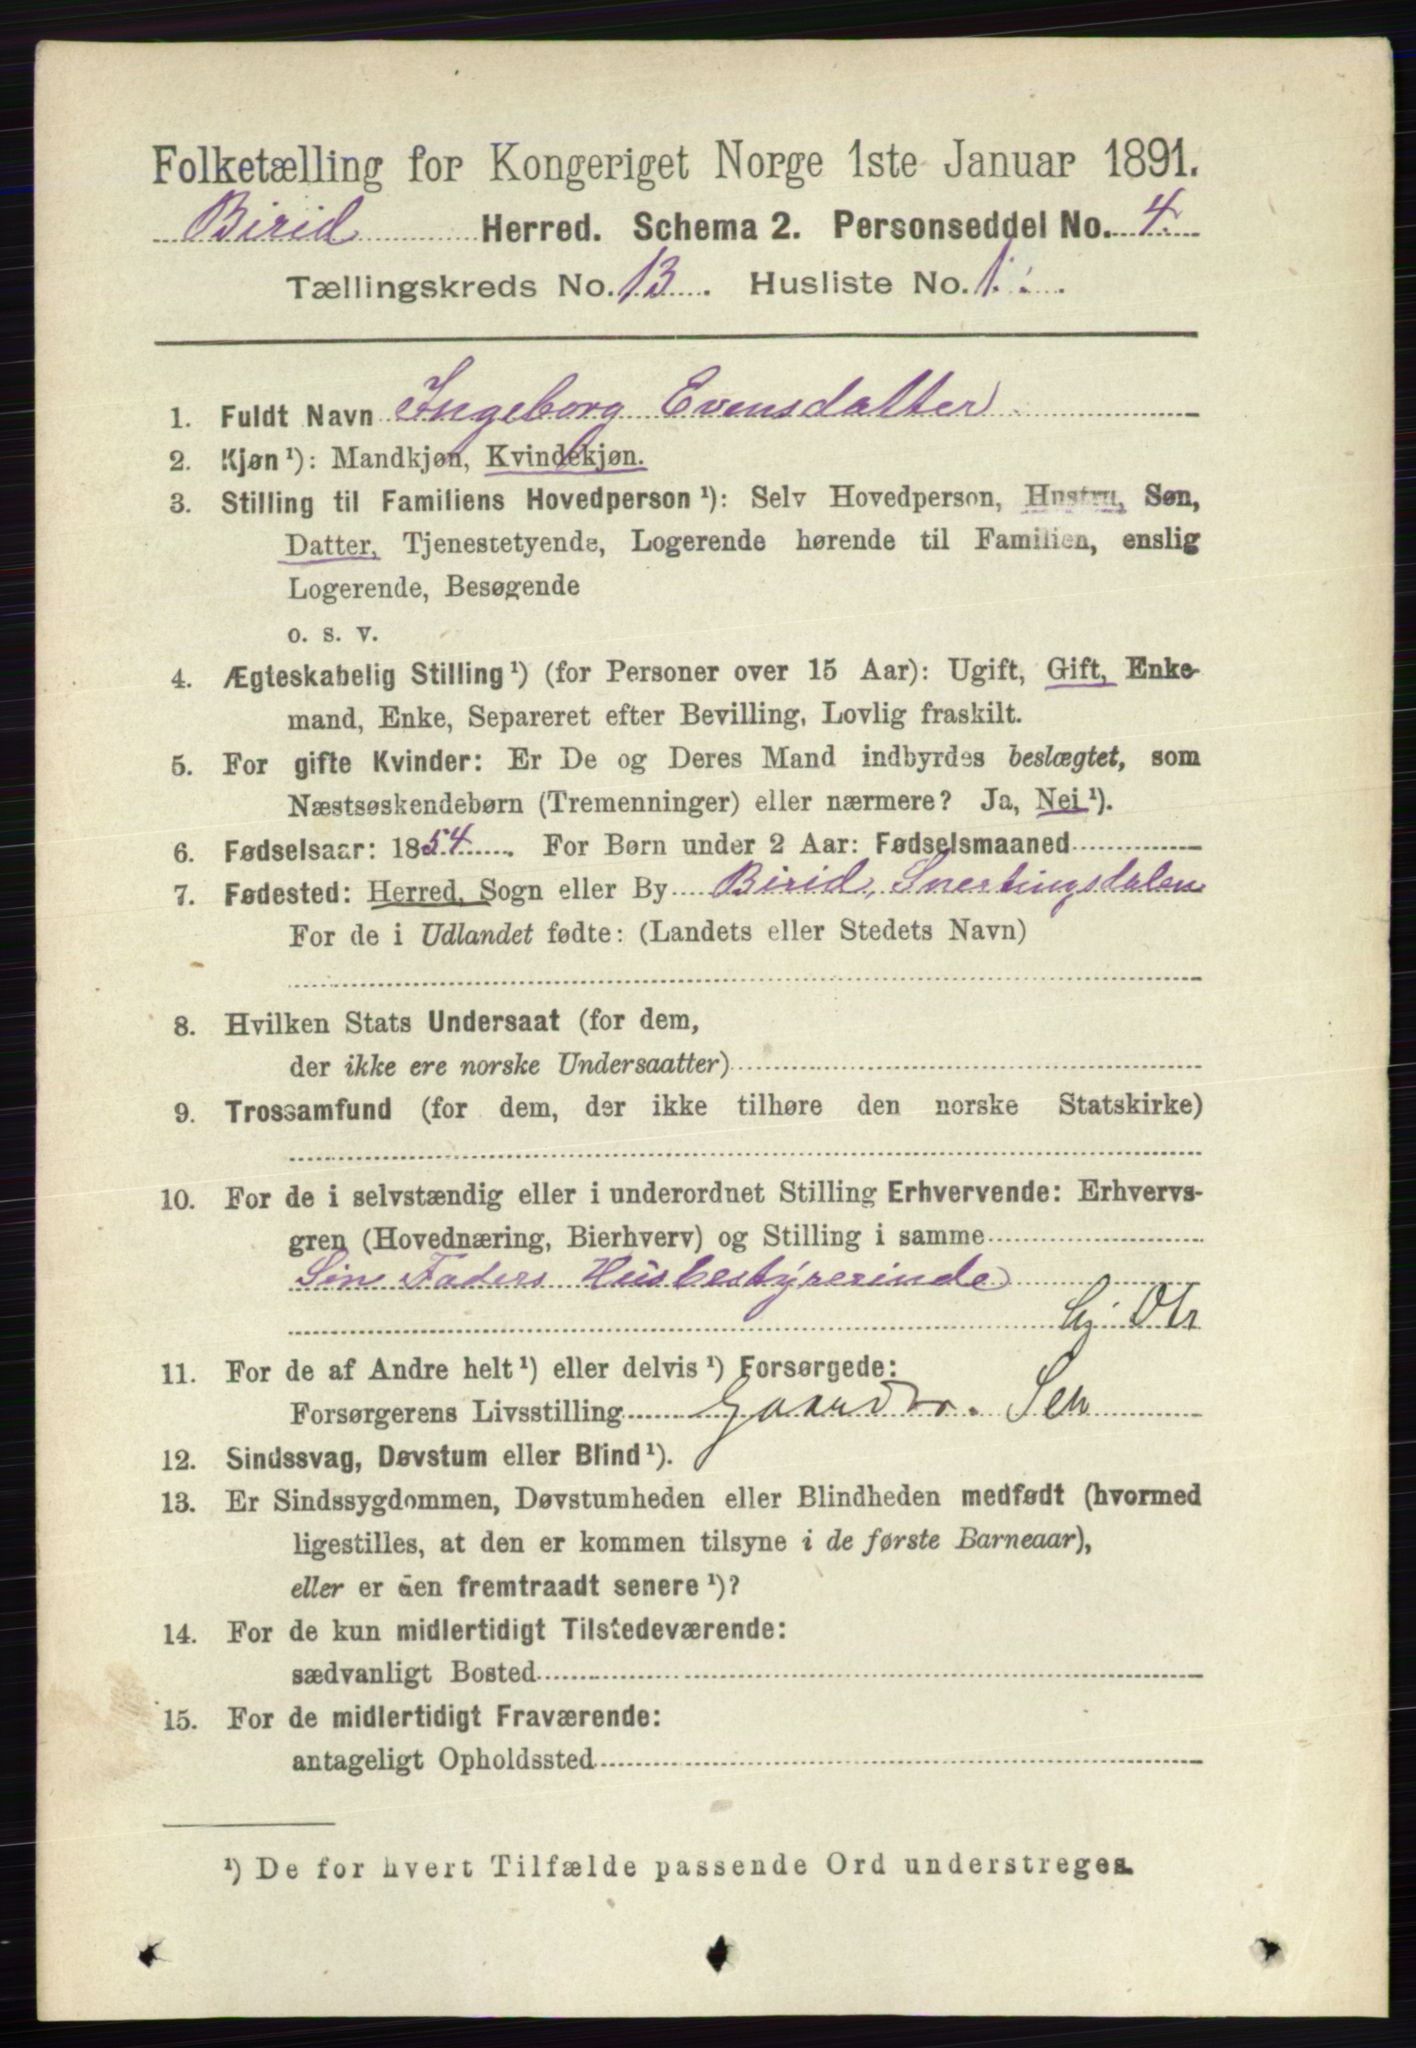 Folketælling for Kongeriget Norge 1ste Januar 1891.
Birid Herred. Schema 2. Personseddel No. 4.
Tællingskreds No. 13. Husliste No. 1.
1. Fuldt Navn Ingeborg Evensdatter.
2. Kjøn¹): Mandkjøn, Kvindekjøn.
3. Stilling til Familiens Hovedperson¹): Selv Hovedperson, Hustru, Søn,
Datter, Tjenestetyende, Logerende hørende til Familien, enslig
Logerende, Besøgende
o. s. v.
4. Ægteskabelig Stilling¹) (for Personer over 15 Aar): Ugift, Gift, Enke-
mand, Enke, Separeret efter Bevilling, Lovlig fraskilt.
5. For gifte Kvinder: Er De og Deres Mand indbyrdes beslægtet, som
Næstsøskendebørn (Tremenninger) eller nærmere? Ja, Nei¹).
6. Fødselsaar: 1854. For Børn under 2 Aar: Fødselsmaaned
7. Fødested: Herred, Sogn eller By Birid, Snertingsdalen
For de i Udlandet fødte: (Landets eller Stedets Navn)
8. Hvilken Stats Undersaat (for dem,
der ikke ere norske Undersaatter)
9. Trossamfund (for dem, der ikke tilhøre den norske Statskirke)
10. For de i selvstændig eller i underordnet Stilling Erhvervende: Erhvervs-
gren (Hovednæring, Bierhverv) og Stilling i samme
Sin Faders Husbestyrerinde
11. For de af Andre helt¹) eller delvis¹) Forsørgede:
Forsørgerens Livsstilling
12. Sindssvag, Døvstum eller Blind¹).
13. Er Sindssygdommen, Døvstumheden eller Blindheden medfødt (hvormed
ligestilles, at den er kommen tilsyne i de første Barneaar),
eller er den fremtraadt senere¹)?
14. For de kun midlertidigt Tilstedeværende:
sædvanligt Bosted
15. For de midlertidigt Fraværende:
antageligt Opholdssted
¹) De for hvert Tilfælde passende Ord understreges.